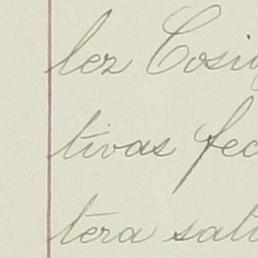 lez Cosi
tivas fec
tera sali